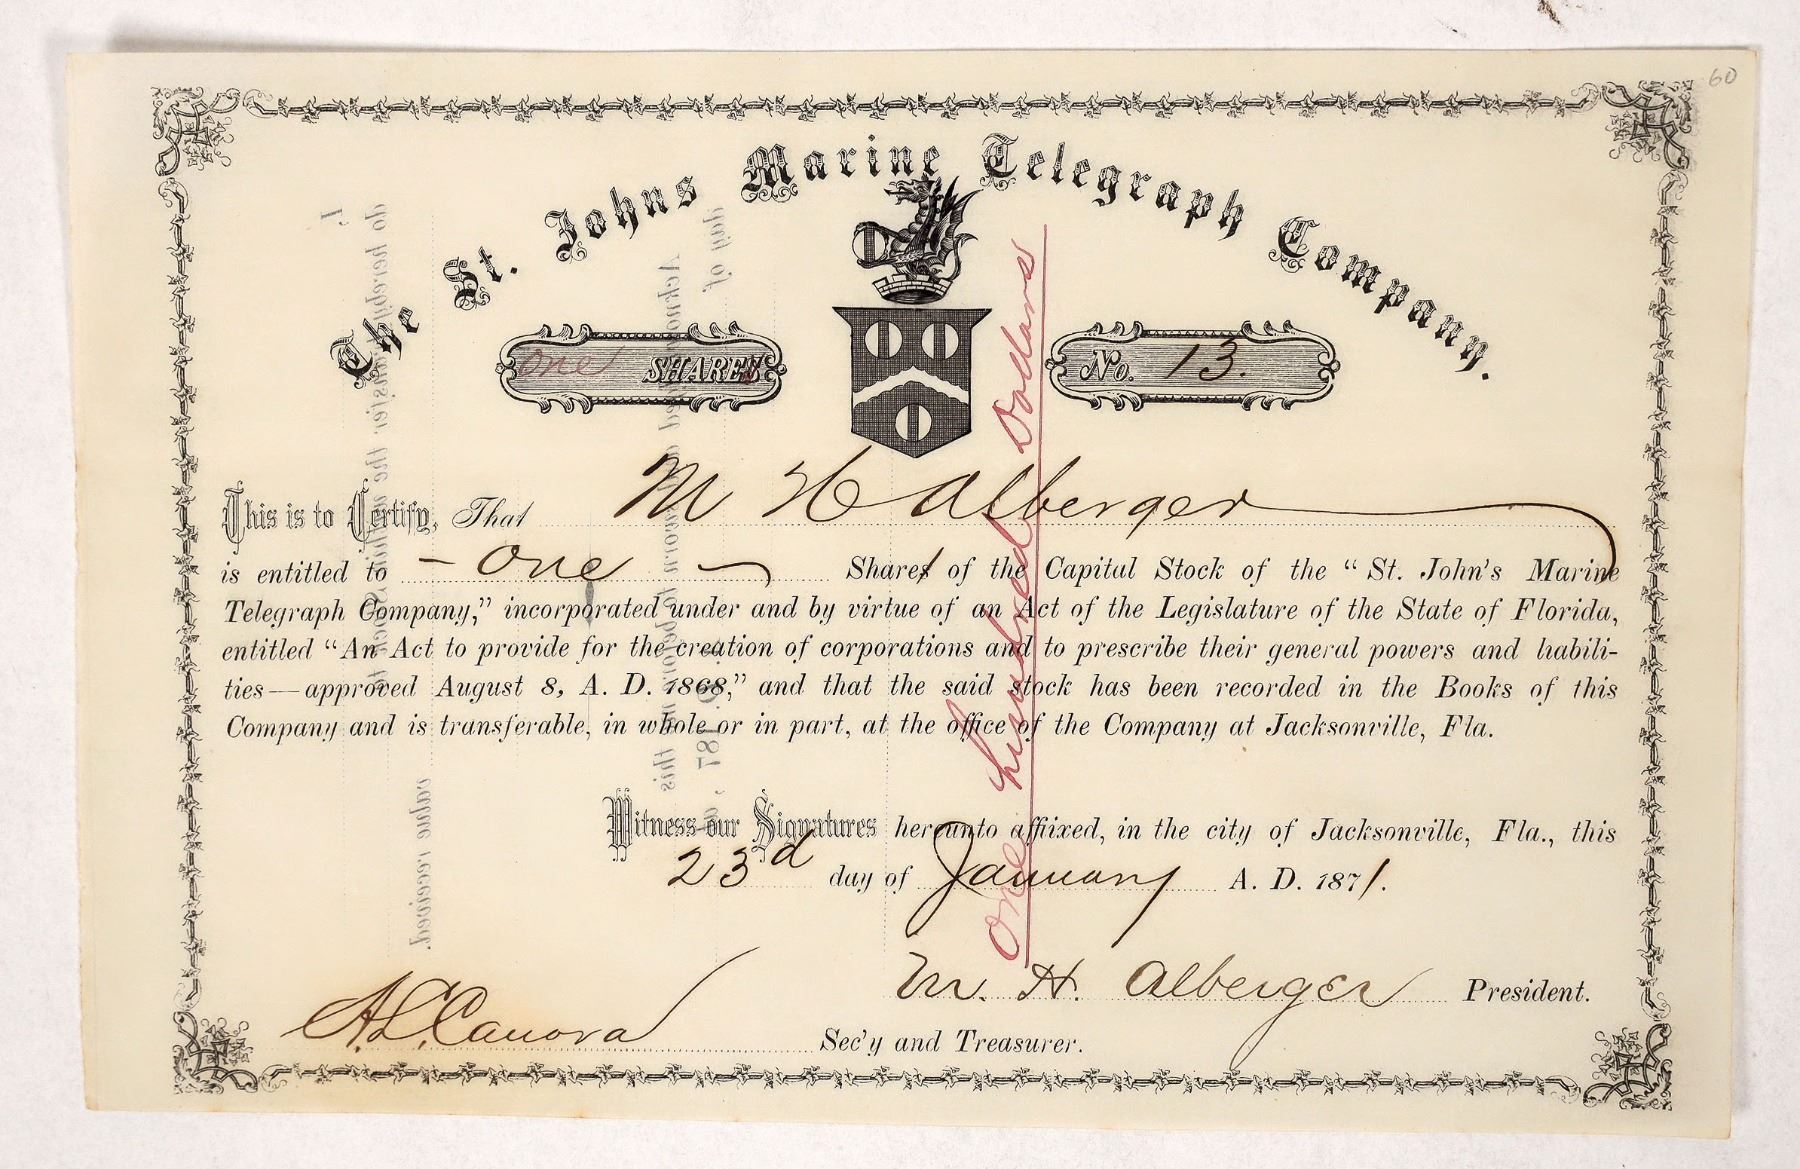 60
The St. Johns Marine Telegraph Company.
one SHARES
No. 13.
This is to Certify, That M H Alberger
is entitled to – one – Shares of the Capital Stock of the “St. John's Marine
Telegraph Company,” incorporated under and by virtue of an Act of the Legislature of the State of Florida,
entitled “An Act to provide for the creation of corporations and to prescribe their general powers and liabili-
ties—approved August 8, A. D. 1868,” and that the said stock has been recorded in the Books of this
Company and is transferable, in whole or in part, at the office of the Company at Jacksonville, Fla.
One hundred Dollars
Witness our Signatures hereunto affixed, in the city of Jacksonville, Fla., this
23d day of January A. D. 1871.
M. H. Alberger President.
A. L. Canova Sec'y and Treasurer.
do hereby transfer the within Stock to
value received.
day of 187